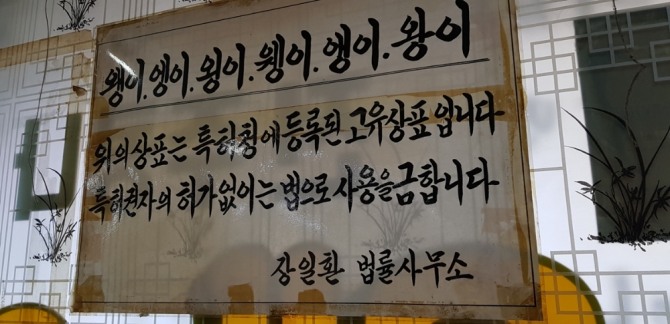 웽이.엥이.윙이.웽이.엥이.왕이
위의상표는 특허청에등록된 고유상표입니다
특허권자의 허가없이는 법으로 사용을금합니다
장일환 법률사무소